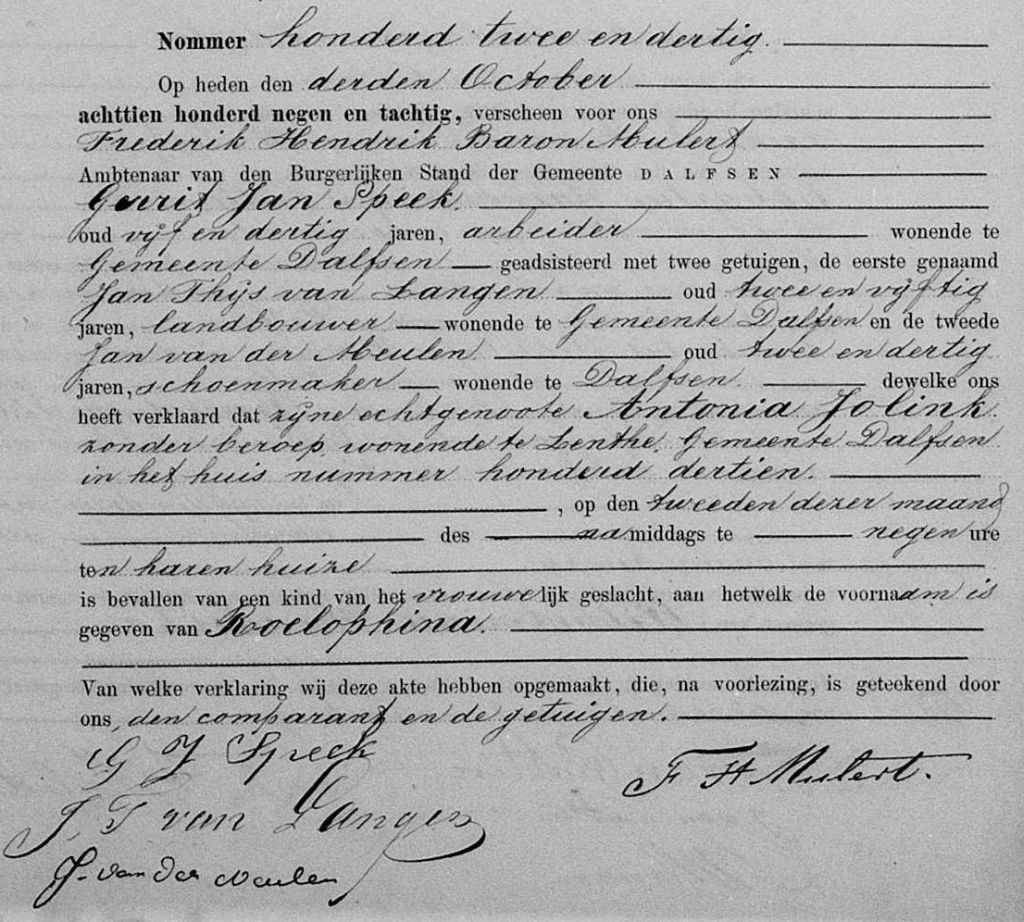 Nommer honderd twee en dertig.
Op heden den derden October
achttien honderd negen en tachtig, verscheen voor ons
Frederik Hendrik Baron Mulert
Ambtenaar van den Burgerlijken Stand der Gemeente DALFSEN
Gerrit Jan Speek.
oud vijf en dertig jaren, arbeider wonende te
Gemeente Dalfsen geadsisteerd met twee getuigen, de eerste genaamd
Jan Thijs van Langen oud twee en vijftig
jaren, landbouwer wonende te Gemeente Dalfsen en de tweede
Jan van der Meulen oud twee en dertig
jaren, schoenmaker wonende te Dalfsen. dewelke ons
heeft verklaard dat zijne echtgenoote Antonia Jolink.
zonder beroep, wonende te Lenthe, Gemeente Dalfsen
in het huis nummer honderd dertien.
, op den tweeden dezer maand
des namiddags te negen ure
ten haren huize
is bevallen van een kind van het vrouwelijk geslacht, aan hetwelk de voornaam is
gegeven van Roelophina.
Van welke verklaring wij deze akte hebben opgemaakt, die, na voorlezing, is geteekend door
ons, den comparant en de getuigen.
G J Speek
F H Mulert.
J. T van Langen
J. van der Meulen